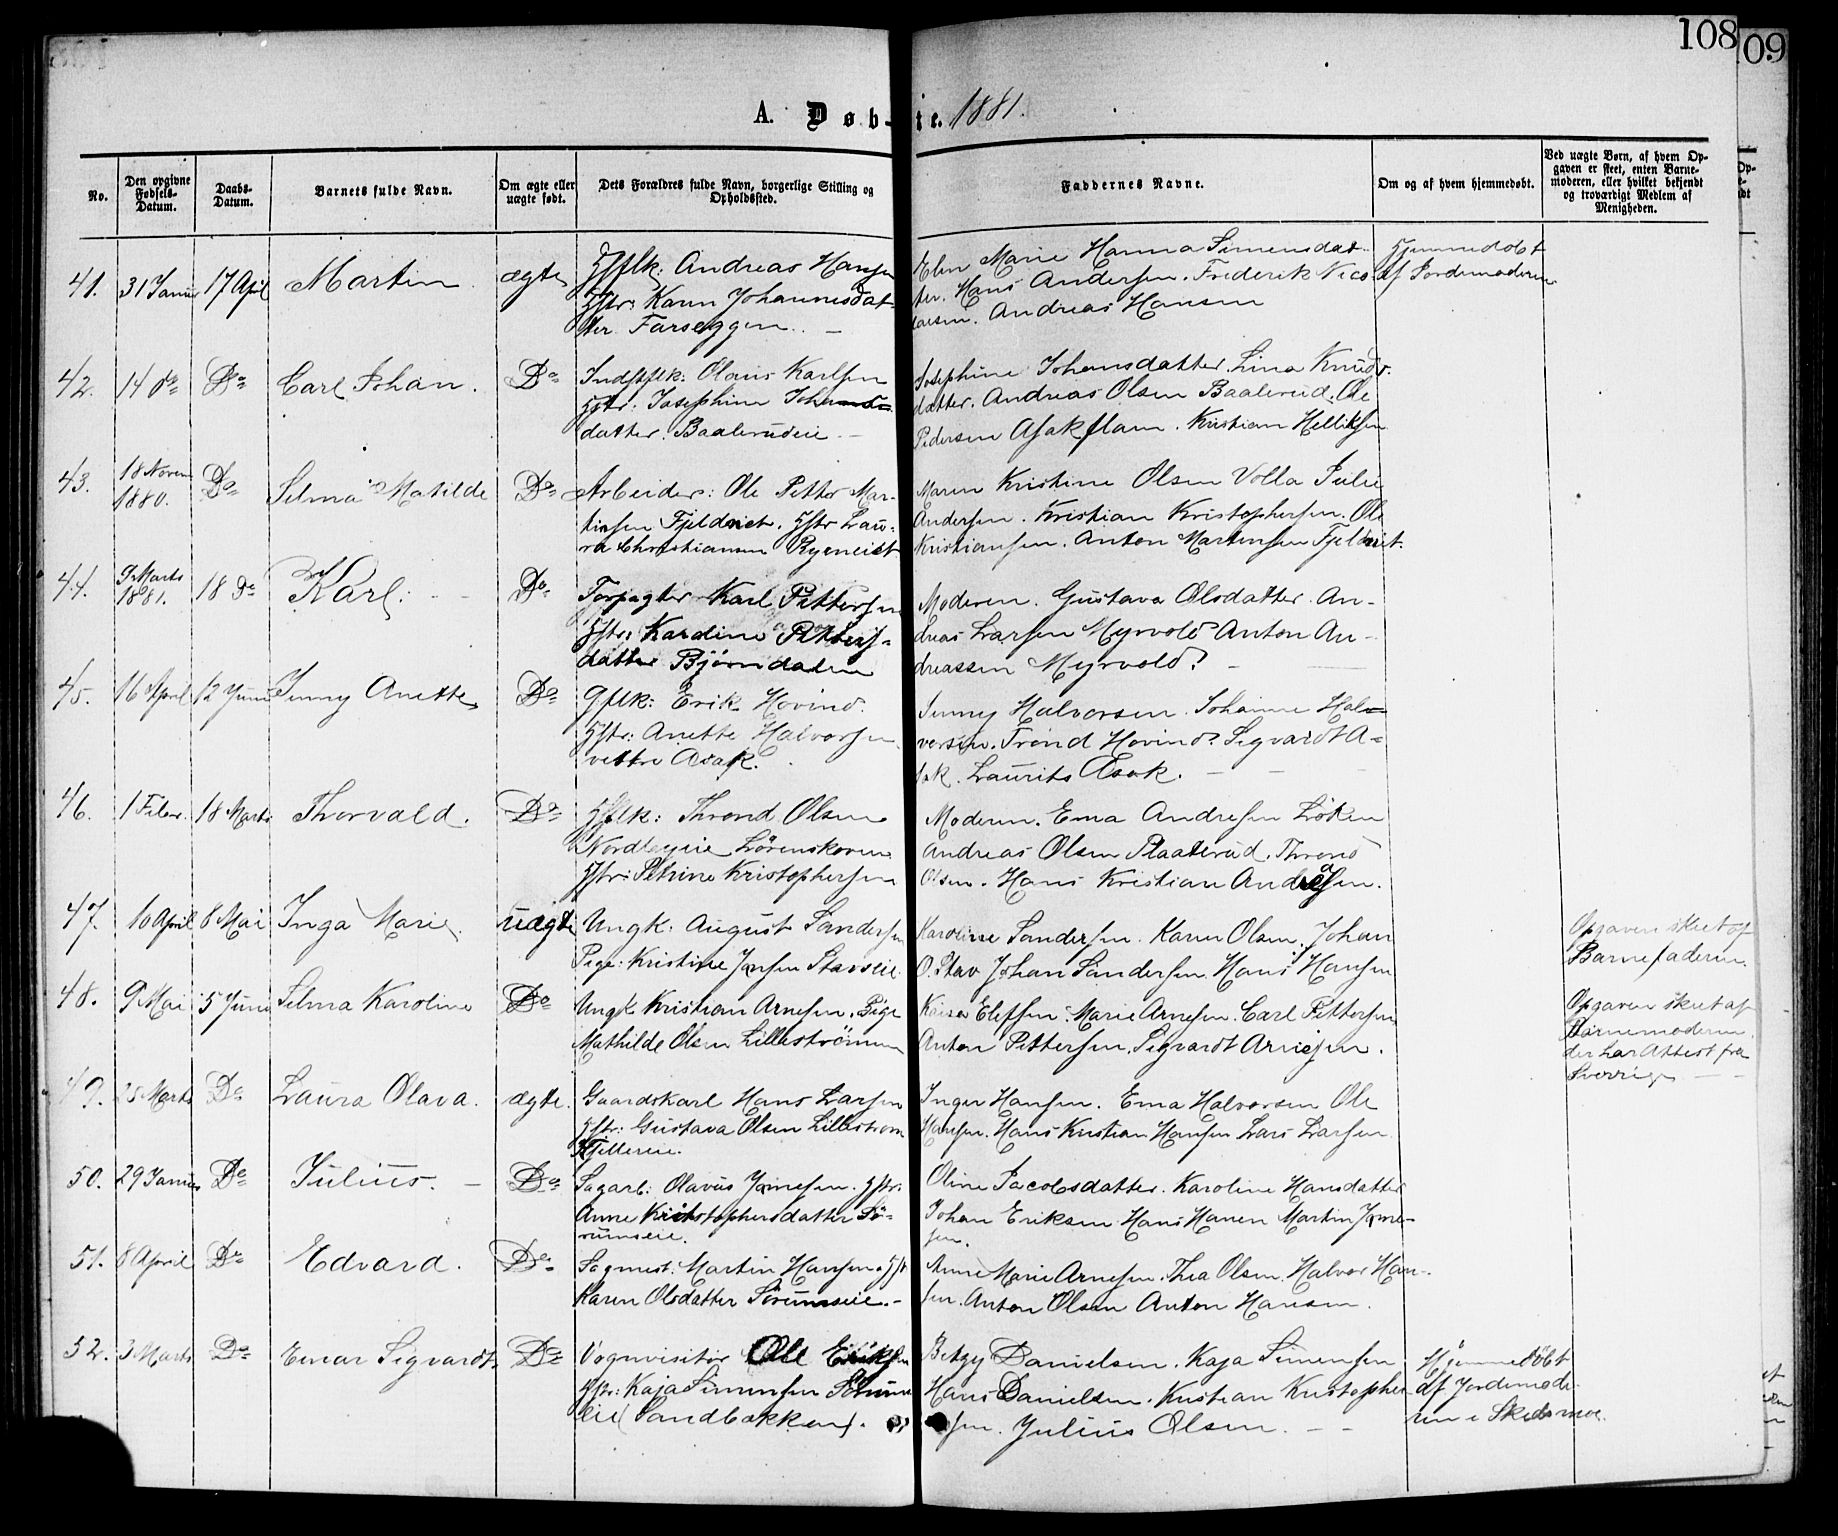 108
09
A. Døb-te. 1881.
No.
Den opgivne Fødsels-Datum.
Daabs-Datum.
Barnets fulde Navn.
Om ægte eller uægte født.
Dets Forældres fulde Navn, borgerlige Stilling og Opholdssted.
Faddernes Navne.
Om og af hvem hjemmedøbt.
Ved uægte Børn, af hvem Opgaven er skeet, enten Barnemoderen, eller hvilket bekjendt og troværdigt Medlem af Menigheden.
41. 31 Januar 17 April Martin ægte
Gflk: Andreas Hansen
Hstr: Karen Johannesdat-
ter Farseggen. —
Elen Marie Hanna Simensdat-
ter. Hans Andersen. Frederik Nico-
laisen. Andreas Hansen
Hjemmedøbt
af Jordemoderen
42. 14 Do Do Carl Johan. Do
Indstflk: Olaus Karlsen
Hstr: Josephine Johans-
datter. Baalerudeie —
Josephine Johansdatter. Lina Knuds-
datter. Andreas Olsen Baalerud. Ole
Pedersen Asak Kristian Helliksen
43. 18 Novem 1880. Do Selma Matilde Do
Arbeider: Ole Petter Mar-
tinsen Fjeldviet. Hstr Lau-
ra Christiansen Ryeneiet
Maren Kristine Olsen Volla Julie
Andersen. Kristian Kristophersen. Ole
Kristiansen. Anton Martinsen Fjeldviet.
44. 9 Marts 1881. 18 Do Karl. Do
Forpagter Karl Pettersen
Hstr: Kardine Petters-
datter Bjørndalen
Moderen. Gustava Olsdatter. An-
dreas Larsen Myrvold Anton An-
dreassen Myrvold. —
45. 16 April 12 Juni Jenny Anette Do
Gflk: Erik Hovind.
Hstr: Anette Halvorsen
vestre Asak.
Jenny Halvorsen. Johanne Hal-
vorsen. Trond Hovind. Sigvardt A-
sak. Laurits Asak. —
46. 1 Febr. 18 Marts Thorvald. Do
Gflk: Thrond Olsen
Nordlieie Lørenskoven
Hstr: Petrine Kristophersen
Moderen. Ema Andresen Løken
Andreas Olsen Plaaterud. Thrond
Olsen. Hans Kristian Andresen.
47. 10 April 8 Mai Inga Marie. uægte
Ungk: August Sandersen
Pige: Kristine Jensen Stavseie
Karoline Sandersen. Karen Olsen. Johan
O. Stav Johan Sandersen. Hans Hansen
Opgaven skeet af
Barnefaderen.
48. 9 Mai 5 Juni Selma Karoline Do
Ungk Kristian Arnesen. Pige
Mathilde Olsen Lillestrømmen
Kaisa Elefsen. Marie Arnesen. Carl Pettersen
Anton Pettersen. Sigvardt Arnesen.
Opgaven skeet af
Barnemoderen
der har Attest fra
Sverrige —
49. 25 Marts Do Laura Olava. ægte.
Gaardskarl Hans Larsen
Hstr: Gustava Olsen Lillestrøm
Kjellereie.
Inger Hansen. Ema Halvorsen Ole
Hansen. Hans Kristian Hansen Lars Larsen
50. 29 Januar Do Julius. — Do
Sagarb: Olavus Jonesen. Hstr:
Anne Kristophersdatter Sø-
rumseie.
Oline Jacobsdatter. Karoline Hansdatter
Johan Eriksen Hans Hanen Martin Jone-
sen.
51. 8 April Do Edvard. Do
Sagmest: Martin Hansen. Hstr
Karen Olsdatter Sørumseie. —
Anne Marie Arnesen. Thea Olsen. Halvor Han-
sen. Anton Olsen Anton Hansen.
52. 3 Marts Do Einar Sigvardt. Do
Vognvisitør Ole Eriksen
Hstr: Kaja Simensen Sørums
eie (Sandbakken).
Betzy Danielsen. Kaja Simensen
Hans Danielsen. Kristian Kristopher-
sen. Julius Olsen. — —
Hjemmedøbt
af Jordemode-
ren i Skedsmoe.